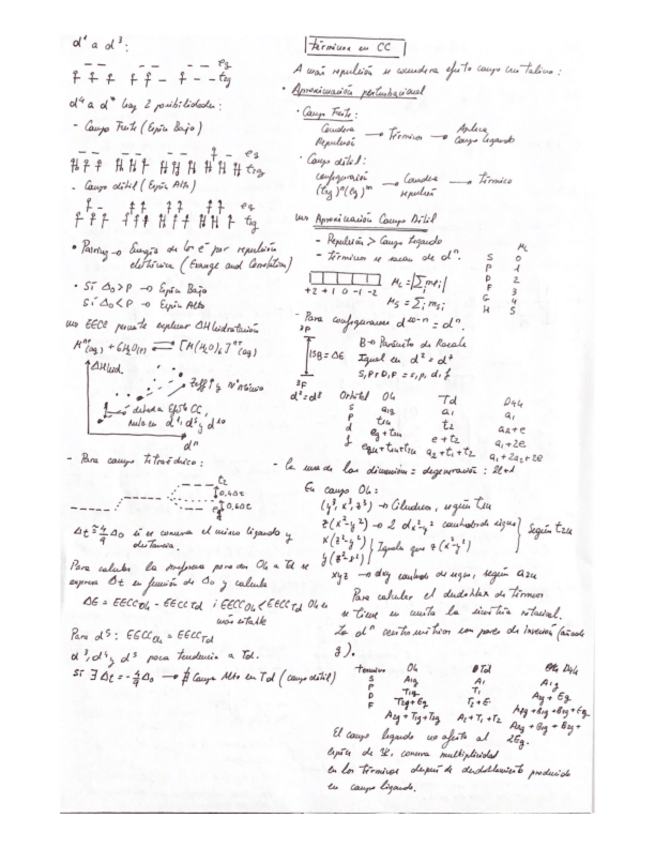 d¹ a d³:
eg
t2g
d⁴ a d⁷ hay 2 posibilidades:
- Campo Fuerte (Espín Bajo)
eg
t2g
- Campo débil (Espín Alto)
eg
t2g
• Pairing → Energía de los e⁻ por repulsión
electrónica (Exchange and Correlation)
• Si Δo > P → Espín Bajo
Si Δo < P → Espín Alto
EECC permite explicar ΔHhidratación
Mⁿ⁺(aq) + 6H2O(l) ⇌ [M(H2O)6]ⁿ⁺(aq)
ΔHhid.
Zeff↑ y Nº Atómico
debido a Efecto CC,
nulo en d⁰, d⁵ y d¹⁰
dⁿ
- Para campo tetraédrico:
t2
0,4Δt
0,6Δt
e
Δt ≅ 4/9 Δo si se conserva el mismo ligando y
distancia
Para calcular la preferencia por Oh a Td se
expresa Δt en función de Δo y calcula
ΔE = EECCOh - EECCTd ; EECCOh < EECCTd Oh es
más estable
Para d⁵: EECCOh = EECCTd
Si ∃ Δt = -4/9 Δo → ∄ Campo Alto en Td (campo débil)
Términos en CC
A más repulsión se considera efecto campo cristalino:
• Aproximación perturbacional
· Campo Fuerte:
Considera Repulsión → Términos → Aplica Campo Ligando
· Campo débil:
configuración (t2g)ⁿ(eg)ᵐ → Considera repulsión → Término
Aproximación Campo Débil
- Repulsión > Campo Ligando
- Términos se sacan de dⁿ.
ML
S 0
P 1
D 2
F 3
G 4
H 5
+2 +1 0 -1 -2
ML = |Σ mli|
MS = Σ msi
- Para configuraciones d¹⁰⁻ⁿ = dⁿ.
³P
15B = ΔE
³F
B → Parámetro de Racah
Igual en d² = d⁷
S, P, D, F = s, p, d, f
d² = d⁸
Orbital Oh Td D4h
s a1g a1 a1
p t1u t2 a2+e
d eg + t2g e + t2 a1+2e
f a2u+t1u+t2u a2+t1+t2 a1+2a2+2e
- Ce una de las dimensión = degeneración: 2l+1
En campo Oh:
(y³, x³, z³) → Cilindros, según t1u
z(x²-y²) → 2 dx²-y² cambiados signo
x(z²-y²)
y(z²-x²)
Iguala que z(x²-y²)
Según t2u
xyz → dxy cambiado de signo, según a2u
Para calcular el desdoblar de términos
se tiene en cuenta la simetría rotacional.
Lo dⁿ centrosimétricos son pares de inversión (añade
g).
Término Oh Td D4h
S A1g A1 A1g
P T1g T1 A2g + Eg
D T2g + Eg T2 + E A1g + B1g + B2g + Eg
F A2g + T1g + T2g A2 + T1 + T2 A2g + B1g + B2g +
2Eg.
El campo ligando no afecta al
espín de Ψ, conserva multiplicidad
en los términos después de desdoblamiento producido
en campo ligando.